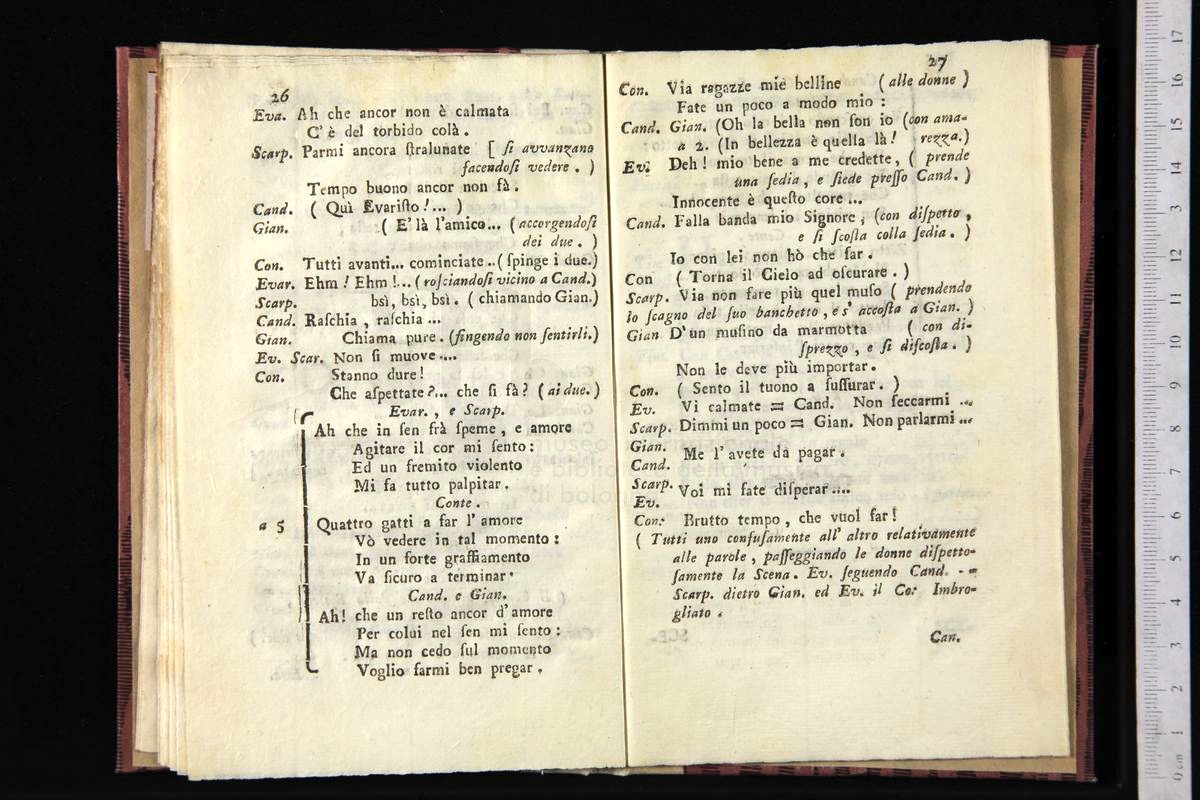 26
Eva. Ah che ancor non è calmata
C'è del torbido colà.
Scarp. Parmi ancora ſtralunate [ ſi avvanzano
facendoſi vedere. )
Tempo buono ancor non fà.
Cand. ( Quì Evariſto!... )
Gian. ( E' là l'amico... (accorgendoſi
dei due. )
Con. Tutti avanti... cominciate .. (ſpinge i due.)
Evar. Ehm! Ehm!... (roſciandoſi vicino a Cand.)
Scarp. bsì, bsì, bsì. ( chiamando Gian.)
Cand. Raſchia, raſchia ...
Gian. Chiama pure. (fingendo non ſentirli.)
Ev. Scar. Non ſi muove....
Con. Stanno dure!
Che aſpettate?... che ſi fà? (ai due.)
Evar., e Scarp.
Ah che in ſen frà ſpeme, e amore
Agitare il cor mi ſento:
Ed un fremito violento
Mi fa tutto palpitar.
Conte.
a 5 Quattro gatti a far l'amore
Vò vedere in tal momento:
In un forte graffiamento
Va ſicuro a terminar.
Cand. e Gian.
Ah! che un reſto ancor d'amore
Per colui nel ſen mi ſento:
Ma non cedo ſul momento
Voglio farmi ben pregar.
27
Con. Via ragazze mie belline (alle donne)
Fate un poco a modo mio:
Cand. Gian. (Oh la bella non ſon io (con ama-
a 2. (In bellezza è quella là! rezza.)
Ev. Deh! mio bene a me credette, ( prende
una ſedia, e ſiede preſſo Cand. )
Innocente è queſto core...
Cand. Falla banda mio Signore, (con diſpetto,
e ſi ſcoſta colla ſedia. )
Io con lei non hò che far.
Con ( Torna il Cielo ad oſcurare. )
Scarp. Via non fare più quel muſo ( prendendo
lo ſcagno del ſuo banchetto, e s'accoſta a Gian. )
Gian D'un muſino da marmotta ( con di-
ſprezzo, e ſi diſcoſta. )
Non le deve più importar.
Con. ( Sento il tuono a ſuſſurar. )
Ev. Vi calmate = Cand. Non ſeccarmi ...
Scarp. Dimmi un poco = Gian. Non parlarmi ...
Gian.
Me l'avete da pagar.
Cand.
Scarp.
Voi mi fate diſperar ....
Ev.
Con: Brutto tempo, che vuol far!
( Tutti uno confuſamente all'altro relativamente
alle parole, paſſeggiando le donne diſpetto-
ſamente la Scena. Ev. ſeguendo Cand. - -
Scarp. dietro Gian. ed Ev. il Co: Imbro-
gliato.
Can.